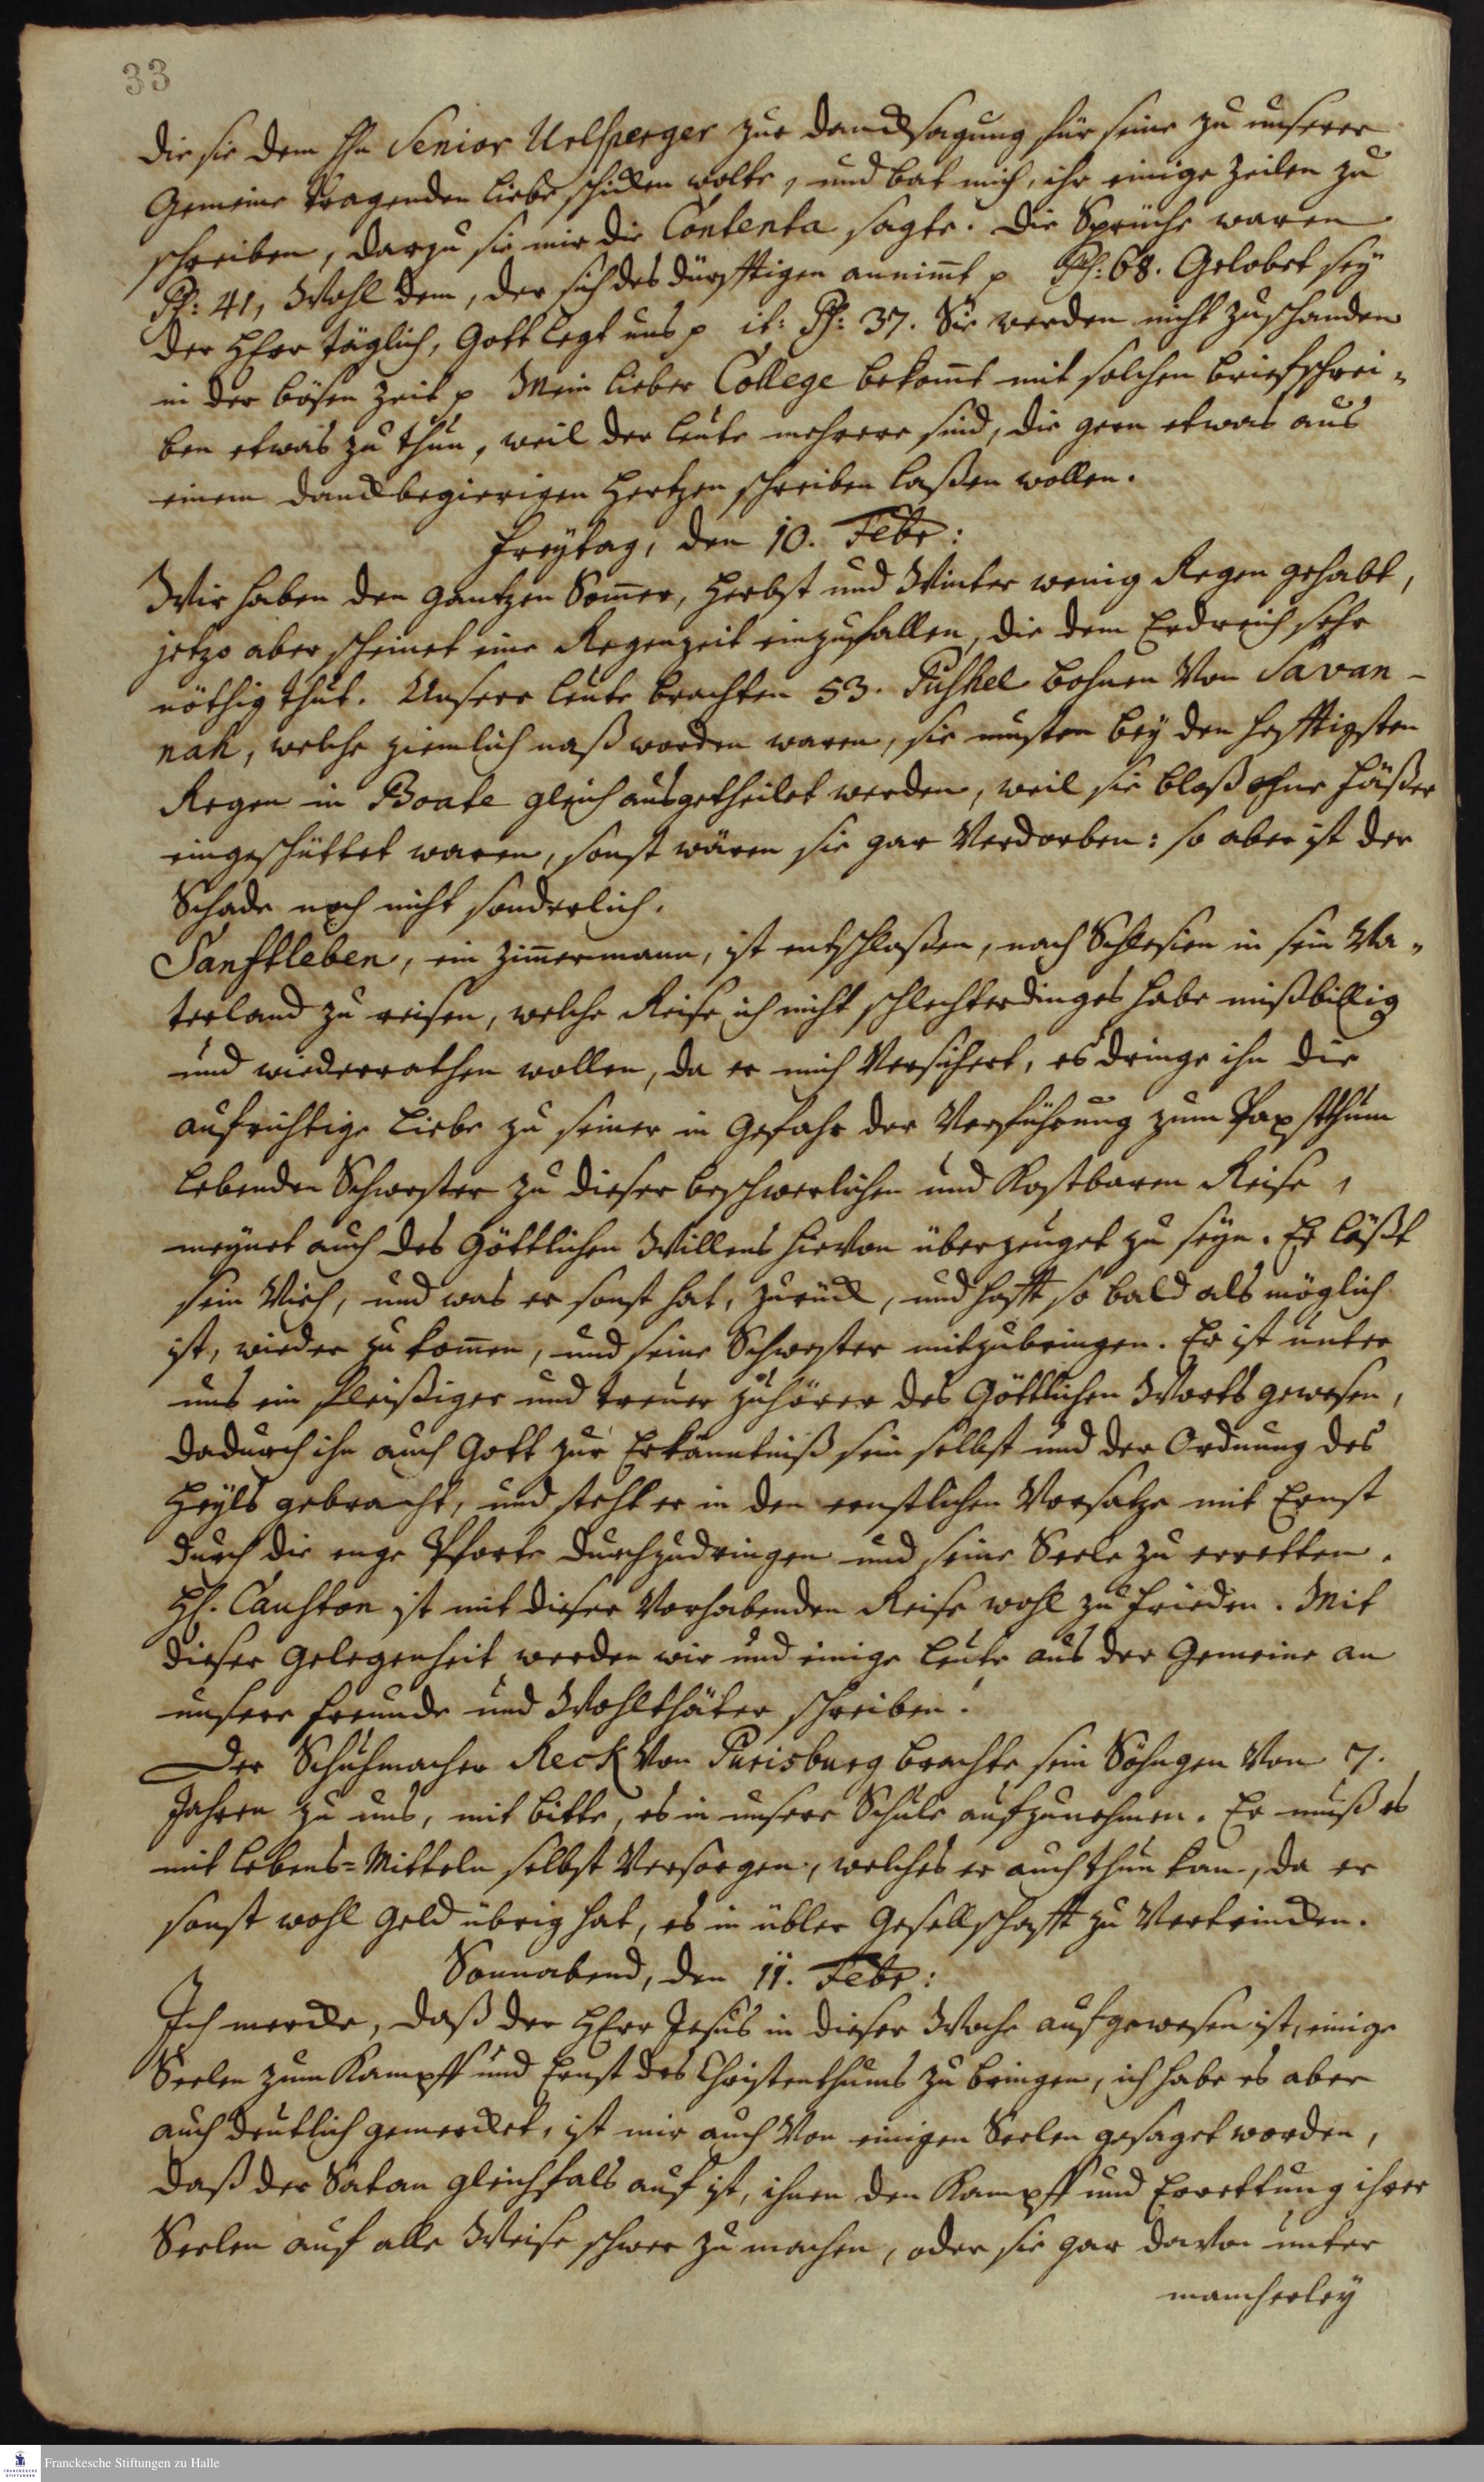 33
die sie dem Hn Senior Urlsperger zur Dancksagung für seine zu unserer
Gemeine tragenden Liebe schicken wolte, und bat mich, ihr einige Zeilen zu
schreiben, darzu sie mir die Contenta sagte. Die Sprüche waren
Ps: 41, Wohl dem, der sich des dürfftigen annim̄t p Ps: 68. Gelobet sey
der HErr täglich, Gott legt uns p it: Ps: 37. Sie werden nicht zu schanden
in der bösen Zeit p Mein lieber College bekom̄t mit solchen briefschrei-
ben etwas zu thun, weil der Leute mehrere sind, die gern etwas aus
einem danckbegierigen Hertzen schreiben laßen wollen.
Freytag, den 10. Febr:
Wir haben den gantzen Som̄er, Herbst und Winter wenig Regen gehabt,
jetzo aber scheinet eine Regenzeit einzufallen, die dem Erdreich sehr
nöthig thut. Unsere Leute brachten 53. Pushel Bohnen von Savan-
nah, welche ziemlich naß worden waren, sie musten bey den hefftigsten
Regen in Boate gleich ausgetheilet werden, weil sie bloß ohne Fäßer
eingeschüttet waren, sonst wären sie gar verdorben: so aber ist der
Schade noch nicht sonderlich.
Sanftleben, ein Zim̄ermann, ist entschloßen, nach Schlesien in sein Va-
terland zu reisen, welche Reise ich nicht schlechterdinges habe mißbillig
und wiederrathen wollen, da er mich versichert, es dringe ihn die
aufrichtige Liebe zu seiner in Gefahr der Verführung zum Papstthum
lebenden Schwester zu dieser beschwerlichen und kostbaren Reise,
meynet auch des Göttlichen Willens hievon überzeuget zu seyn. Er läßt
sein Vieh, und was er sonst hat, zurück, und hofft so bald als möglich
ist, wieder zu kom̄en, und seine Schwester mitzubringen. Er ist unter
uns ein fleißiger und treuer Zuhörer des Göttlichen Worts gewesen,
dadurch ihn auch Gott zur Erkänntniß sein selbst und der Ordnung des
Heyls gebracht, und steht er in den ernstlichen Vorsatze mit Ernst
durch die enge Pforte durchzudringen und seine Seele zu erretten.
H. Causton ist mit dieser vorhabenden Reise wohl zu frieden. Mit
dieser Gelegenheit werden wir und einige Leute aus der Gemeine an
unsere Freunde und Wohlthäter schreiben.
Der Schuhmacher Reck von Purisburg brachte sein Söhngen von 7.
Jahren zu uns, mit bitte, es in unsere Schule aufzunehmen. Er muß es
mit Lebens-Mitteln selbst versorgen, welches er auch thun kan, da er
sonst wohl Geld übrig hat, es in übler Gesellschafft zu vertrincken.
Sonnabend, den 11. Febr:
Ich mercke, daß der HErr Jesus in dieser Woche auf gewesen ist, einige
Seelen zum Kampff und Ernst des Christenthums zu bringen, ich habe es aber
auch deutlich gemercket, ist mir auch von einigen Seelen gesaget worden,
daß der Satan gleichfals auf ist, ihnen den Kampff und Errettung ihrer
Seelen auf alle Weise schwer zu machen, oder sie gar davon unter
mancherley
Franckesche Stiftungen zu Halle